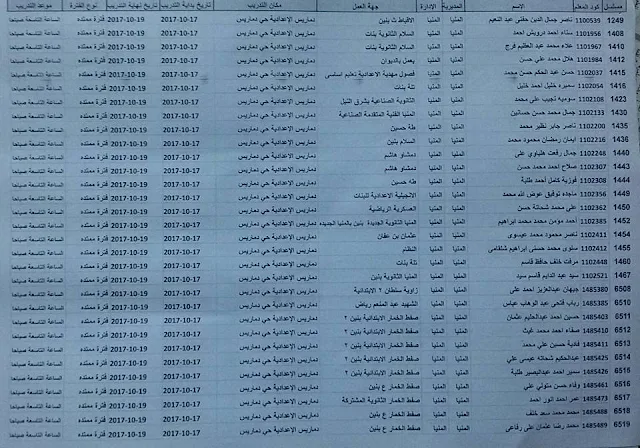 مسلسل كود المعلم الاسم المديرية الادارة جهة العمل مكان التدريب تاريخ بداية التدريب تاريخ نهاية التدريب نوع الفترة موعد التدريب
1249 1100539 ناصر جمال الدين حفنى عبد النعيم المنيا المنيا الاقباط ث بنين دماريس الإعدادية حي دماريس 2017-10-17 2017-10-19 فترة ممتده الساعة التاسعة صباحا
1408 1101956 سناء احمد درويش احمد المنيا المنيا السلام الثانوية بنات دماريس الإعدادية حي دماريس 2017-10-17 2017-10-19 فترة ممتده الساعة التاسعة صباحا
1410 1101967 علاء محمد عبد العظيم فرج المنيا المنيا السلام الثانوية بنات دماريس الإعدادية حي دماريس 2017-10-17 2017-10-19 فترة ممتده الساعة التاسعة صباحا
1412 1101984 هلال محمد علي حسن المنيا المنيا يعمل بالديوان دماريس الإعدادية حي دماريس 2017-10-17 2017-10-19 فترة ممتده الساعة التاسعة صباحا
1415 1102037 حسن عبد الحكم حسن محمد المنيا المنيا فصول مهدية الإعدادية تعليم اساسى دماريس الإعدادية حي دماريس 2017-10-17 2017-10-19 فترة ممتده الساعة التاسعة صباحا
1416 1102054 سميره خليل احمد خليل المنيا المنيا تلة بنات دماريس الإعدادية حي دماريس 2017-10-17 2017-10-19 فترة ممتده الساعة التاسعة صباحا
1423 1102108 سوميه نجيب على محمد المنيا المنيا الثانوية الصناعية بشرق النيل دماريس الإعدادية حي دماريس 2017-10-17 2017-10-19 فترة ممتده الساعة التاسعة صباحا
1430 1102133 جمال محمد حسن حسانين المنيا المنيا المنيا الفنية المتقدمة الصناعية دماريس الإعدادية حي دماريس 2017-10-17 2017-10-19 فترة ممتده الساعة التاسعة صباحا
1435 1102200 ناصر جابر نظير محمد المنيا المنيا طه حسين دماريس الإعدادية حي دماريس 2017-10-17 2017-10-19 فترة ممتده الساعة التاسعة صباحا
1436 1102216 ايمان رمضان محمود محمد المنيا المنيا السلام بنين دماريس الإعدادية حي دماريس 2017-10-17 2017-10-19 فترة ممتده الساعة التاسعة صباحا
1440 1102248 جمال رفعت علي المنيا المنيا دمشاو هاشم دماريس الإعدادية حي دماريس 2017-10-17 2017-10-19 فترة ممتده الساعة التاسعة صباحا
1443 1102307 صلاح احمد محمد حسن المنيا المنيا دمشاو هاشم دماريس الإعدادية حي دماريس 2017-10-17 2017-10-19 فترة ممتده الساعة التاسعة صباحا
1444 1102308 فوزية كامل أحمد طلبة المنيا المنيا طه حسين دماريس الإعدادية حي دماريس 2017-10-17 2017-10-19 فترة ممتده الساعة التاسعة صباحا
1449 1102356 ماجده توفيق عوض الله محمد المنيا المنيا الانجيلية الإعدادية للبنات دماريس الإعدادية حي دماريس 2017-10-17 2017-10-19 فترة ممتده الساعة التاسعة صباحا
1450 1102362 على محمد شحاتة حسن المنيا المنيا العسكرية الرياضية دماريس الإعدادية حي دماريس 2017-10-17 2017-10-19 فترة ممتده الساعة التاسعة صباحا
1452 1102385 أحمد مؤمن محمد محمد ابراهيم المنيا المنيا المنيا الثانوية الجديدة بنين بالمنيا الجديده دماريس الإعدادية حي دماريس 2017-10-17 2017-10-19 فترة ممتده الساعة التاسعة صباحا
1454 1102411 ناصر محمود محمد عيسوى المنيا المنيا عثمان بن عفان دماريس الإعدادية حي دماريس 2017-10-17 2017-10-19 فترة ممتده الساعة التاسعة صباحا
1455 1102412 سلوى محمد حسنى ابراهيم شلقامى المنيا المنيا دماريس الإعدادية حي دماريس 2017-10-17 2017-10-19 فترة ممتده الساعة التاسعة صباحا
1460 1102448 مرفت خلف حافظ قاسم المنيا المنيا تلة بنات دماريس الإعدادية حي دماريس 2017-10-17 2017-10-19 فترة ممتده الساعة التاسعة صباحا
1467 1102521 سيد عبد الدايم قاسم سيد المنيا المنيا المنيا الثانوية بنين دماريس الإعدادية حي دماريس 2017-10-17 2017-10-19 فترة ممتده الساعة التاسعة صباحا
6508 1485380 جيهان عبدالعزيز احمد على المنيا المنيا زاوية سلطان ٢ الابتدائية دماريس الإعدادية حي دماريس 2017-10-17 2017-10-19 فترة ممتده الساعة التاسعة صباحا
6510 1485385 رباب فتحى عبد الوهاب عباس المنيا المنيا الشهيد عبد المنعم رياض دماريس الإعدادية حي دماريس 2017-10-17 2017-10-19 فترة ممتده الساعة التاسعة صباحا
6511 1485403 حسين احمد عبدالحليم عثمان المنيا المنيا صفط الخمار الابتدائية بنين ٢ دماريس الإعدادية حي دماريس 2017-10-17 2017-10-19 فترة ممتده الساعة التاسعة صباحا
6512 1485410 صفاء احمد محمد غيث المنيا المنيا صفط الخمار الابتدائية بنين ٢ دماريس الإعدادية حي دماريس 2017-10-17 2017-10-19 فترة ممتده الساعة التاسعة صباحا
6513 1485411 فادية حسين على محمد المنيا المنيا صفط الخمار الابتدائية بنين ٢ دماريس الإعدادية حي دماريس 2017-10-17 2017-10-19 فترة ممتده الساعة التاسعة صباحا
6514 1485425 عبدالحكيم شحاته عيسى علي المنيا المنيا صفط الخمار الابتدائية بنين ٢ دماريس الإعدادية حي دماريس 2017-10-17 2017-10-19 فترة ممتده الساعة التاسعة صباحا
6515 1485426 سمير احمد عبدالبصير طلبة المنيا المنيا صفط الخمار الابتدائية بنين ٢ دماريس الإعدادية حي دماريس 2017-10-17 2017-10-19 فترة ممتده الساعة التاسعة صباحا
6516 1485461 وفاء حسن متولي علي المنيا المنيا صفط الخمار ع بنين دماريس الإعدادية حي دماريس 2017-10-17 2017-10-19 فترة ممتده الساعة التاسعة صباحا
6517 1485483 عمر احمد انور احمد المنيا المنيا صفط الخمار الثانوية المشتركة دماريس الإعدادية حي دماريس 2017-10-17 2017-10-19 فترة ممتده الساعة التاسعة صباحا
6518 1485488 محمد محمد سعد خلف المنيا المنيا صفط الخمار ع بنين دماريس الإعدادية حي دماريس 2017-10-17 2017-10-19 فترة ممتده الساعة التاسعة صباحا
6519 1485489 محمد رضا عثمان على رفاعى المنيا المنيا صفط الخمار ع بنين دماريس الإعدادية حي دماريس 2017-10-17 2017-10-19 فترة ممتده الساعة التاسعة صباحا